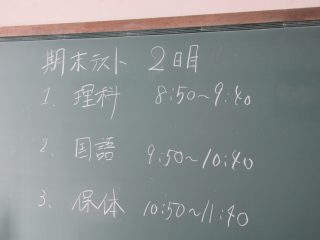 期末テスト 2日目
1. 理科 8:50〜9:40
2. 国語 9:50〜10:40
3. 保体 10:50〜11:40